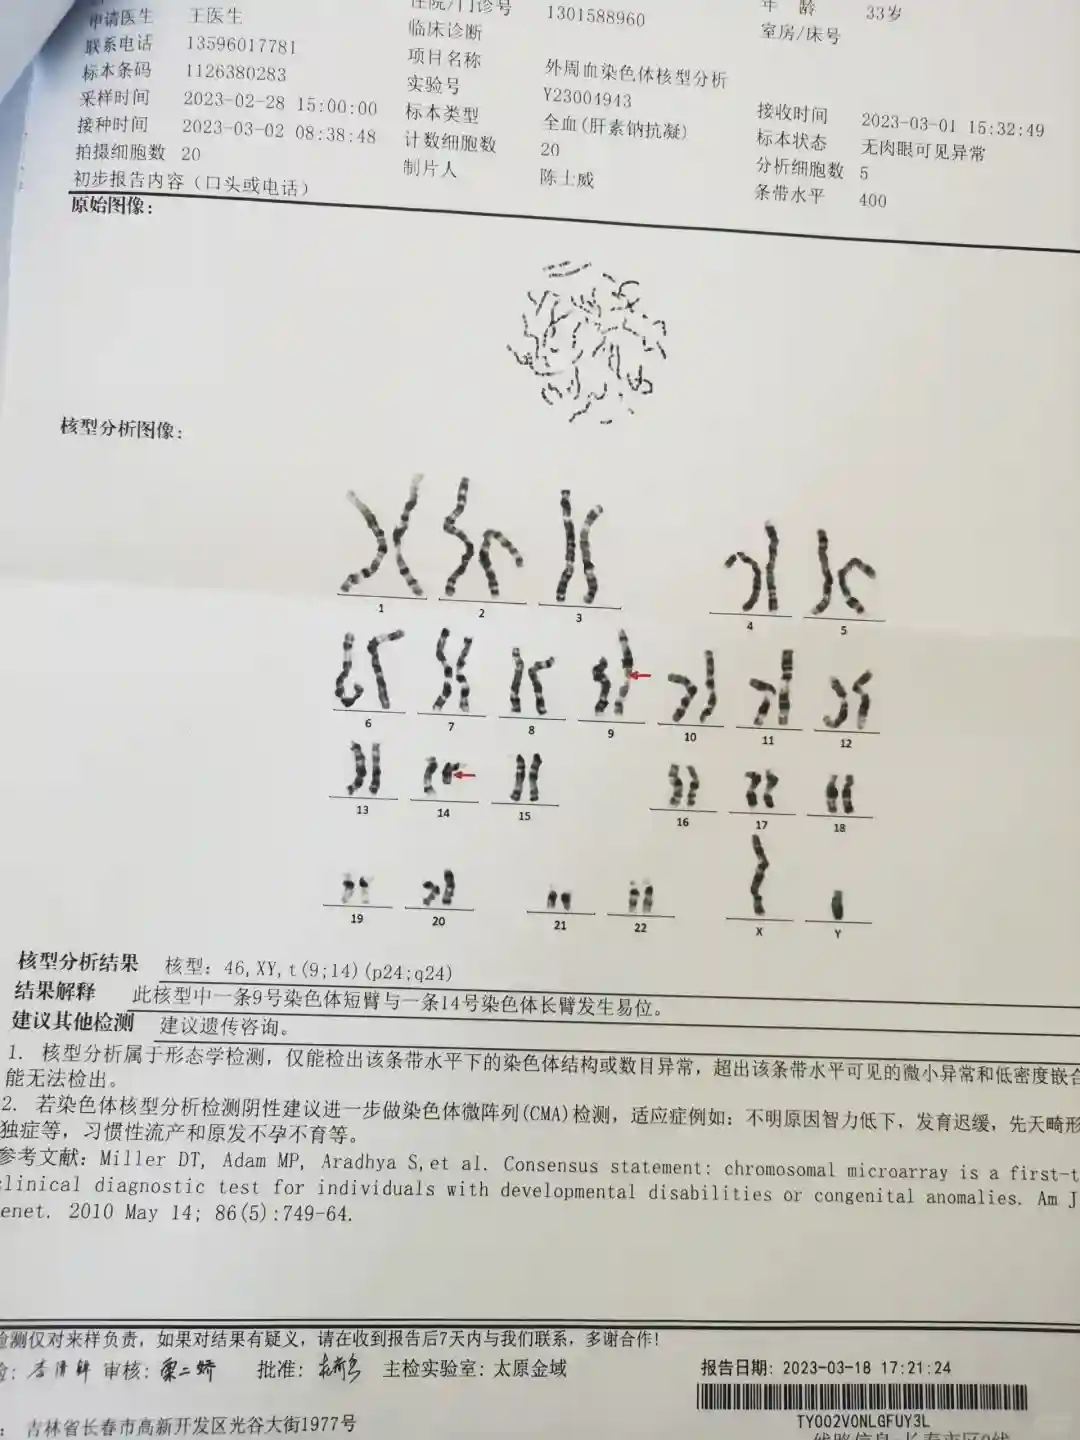 申请医生 王医生 住院/门诊号 1301588960 年 龄 33岁
联系电话 13596017781 临床诊断 室房/床号
标本条码 1126380283 项目名称 外周血染色体核型分析
采样时间 2023-02-28 15:00:00 实验号 Y23004943 接收时间 2023-03-01 15:32:49
接种时间 2023-03-02 08:38:48 标本类型 全血(肝素钠抗凝) 标本状态 无肉眼可见异常
拍摄细胞数 20 计数细胞数 20 分析细胞数 5
初步报告内容（口头或电话） 制片人 陈士威 条带水平 400
原始图像:
核型分析图像:
1 2 3 4 5
6 7 8 9 10 11 12
13 14 15 16 17 18
19 20 21 22 X Y
核型分析结果 核型: 46,XY,t(9;14)(p24;q24)
结果解释 此核型中一条9号染色体短臂与一条14号染色体长臂发生易位。
建议其他检测 建议遗传咨询。
1. 核型分析属于形态学检测，仅能检出该条带水平下的染色体结构或数目异常，超出该条带水平可见的微小异常和低密度嵌合
能无法检出。
2. 若染色体核型分析检测阴性建议进一步做染色体微阵列(CMA)检测，适应症例如: 不明原因智力低下，发育迟缓，先天畸形
独症等，习惯性流产和原发不孕不育等。
参考文献: Miller DT, Adam MP, Aradhya S,et al. Consensus statement: chromosomal microarray is a first-t
clinical diagnostic test for individuals with developmental disabilities or congenital anomalies. Am J
enet. 2010 May 14; 86(5):749-64.
检测仅对来样负责，如果对结果有疑义，请在收到报告后7天内与我们联系，多谢合作!
审核: 批准: 主检实验室: 太原金域 报告日期: 2023-03-18 17:21:24
TY002V0NLGFUY3L
吉林省长春市高新开发区光谷大街1977号